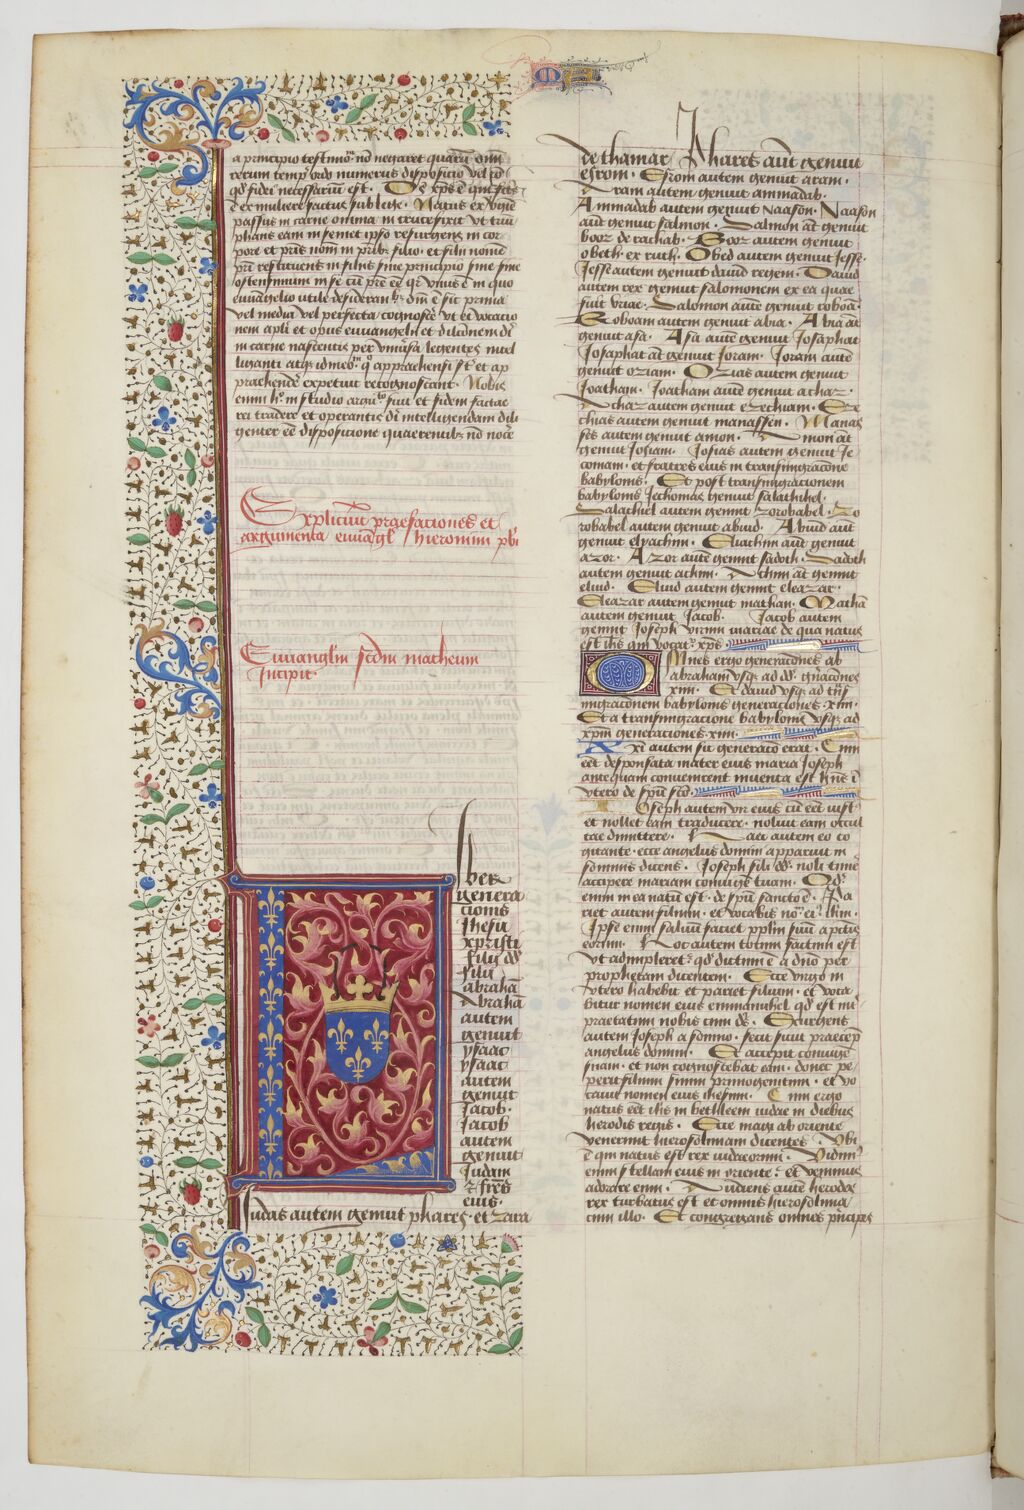 MA
a principio testimo᷒. nõ negaret quarũ om̃
rerum temp᷒ vdo numerus dispositio vel rõ
qd fidei necessariũ est. Qd xp̃s ẽ qui fct᷒
ẽ ex muliere factus sub lege. Natus ex v̾gine
passus in carne omnia in cruce fixit vt triũ
phans eam in semet ipso resurgens in cor
pore et pr̃is nom̃ in prib᷒ filio. et filii nomẽ
pri restituens in filiis sine principio sine fine
ostendens in se cũ pr̃e eẽ q̃r vnus ẽ in quo
euuangelio vtile desiderantib᷒. dm̃ ẽ sic prima
vel media vel perfecta cognoscẽ vt et vocatio
nem apl̃i et opus euuangelii et dilc̃õnem dĩ
in carne nascentis per vniv̾sa legentes intel
ligant atq̃ id in eo in q̊ apprahensi st̃. et ap
prahendẽ expetunt recognoscant. Nobis
enim h᷒. in studio argu᷒. fuit et fidem factae
rei tradere et operantis dĩ intelligendam dili
genter eẽ dispositione quaerentib᷒ nõ tacẽ
Expliciũt praefationes et
argumenta euuãgl̃. Hieronimi pb̃i
Euuangliũ scd̃m matheum
incipit.
Iber
genera
tionis
Ihesu
xpristi
filii dd̃
filii
abrahã
Abrahã
autem
genuit
ysaac
ysaac
autem
genuit
Jacob.
Jacob
autem
genuit
Judam
et frẽs
eius.
Judas autem genuit phares. et zara
de thamar. Phares aũt genuit
esrom. Esrom autem genuit aram.
Aram autem genuit ammadab.
Ammadab autem genuit Naason. Naason
aũt genuit salmon. Salmon aũt genuit
booz de rachab. Booz autem genuit
obeth. ex ruth. Obed autem genuit Jesse.
Jesse autem genuit dauid regem. Dauid
autem rex genuit salomonem ex ea quae
fuit vriae. Salomon autẽ genuit roboã.
Roboam autem genuit abia. Abia aũt
genuit asa. Asa autẽ genuit Josaphat
Josaphat aũt genuit Joram. Joram autẽ
genuit oziam. Ozias autem genuit
Joatham. Joatham autẽ genuit achaz.
Achaz autem genuit ezechiam. Eze
chias autem genuit manassen. Manas
ses autem genuit amon. Amon aũt
genuit Josiam. Josias autem genuit Je
coniam. et fratres eius in transmigracione
babylonis. Et post transmigracionem
babylonis Jechonias genuit salathihel.
Salathiel autem genuit zorobabel. Zo
robabel autem genuit abiud. Abiud aũt
genuit elyachim. Eliachim aũt genuit
azor. Azor autẽ genuit sadoth. Sadoth
autem genuit achim. Achim aũt genuit
eliud. Eliud autem genuit eleazar.
Eleazar autem genuit mathan. Mathã
autem genuit Jacob. Jacob autem
genuit Joseph virum mariae de qua natus
est ihs qui vocat᷒ xp̃s.
Omnes ergo generacões ab
abraham vsq̃ ad dd̃. gn̄acões
xiiii. Et dauid vsq̃ ad trñs
migracõnem babylonis generaciones. xiiii.
Et a transmigracione babylonis vsq̃ ad
xpm̃ generaciones. xiiii.
Xp̃i autem sic generacio erat. Cum
eẽt desponsata mater eius maria Joseph
antequam conuenirent inuenta est hñs ĩ
vtero de spũ scõ.
Joseph autem vir eius cũ eẽt iust᷒
et nollet eam traducere. voluit eam occul
tae dimittere. Haec autem eo co
gitante. ecce angelus domini apparuit in
somnis dicens. Joseph fili dd̃. noli timẽ
accipere mariam coniugẽ tuam. Qd̃.
enim in ea natũ est. de spũ sancto ẽ. Pa
riet autem filium. et vocabis nom̃ ei᷒. Ihm̃.
Ipse enim saluũ faciet pplm̃ suũ a pctis
eorum. Hoc autem totum factum est
vt adimpleret᷒. qd̃ dictum ẽ a dño per
prophetam dicentem. Ecce virgo in
vtero habebit et pariet filium. et voca
bitur nomen eius emmanuhel qd̃ est in̾
praetatum nobis cum ds̃. Exurgens
autem Joseph a somno. fecit sicut praecep̃
angelus domini. Et accepit coniugẽ
suam. et non cognoscebat eam. donec pe
perit filium suum primogenitum. et vo
cauit nomen eius ihesum. Cum ergo
natus eẽt ihs in bethleem iudae in diebus
herodis regis. Ecce magi ab oriente
venerunt hierosolimam dicentes. Vbi
ẽ qui natus est rex iudaeorum. Vidim᷒
enim stellam eius in oriente. et venimus
adorare eum. Audiens autẽ herodes
rex turbatus est et omnis hierosolima
cum illo. Et congregans omnes pñcipes